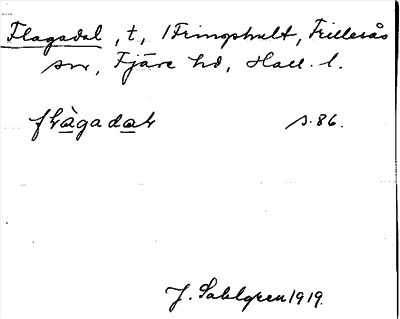 Flagadal, t, 1 Fringshult, Frillesås
sn, Fjäre hd, Hall. l.
s. 86.
J. Sahlgren 1919.